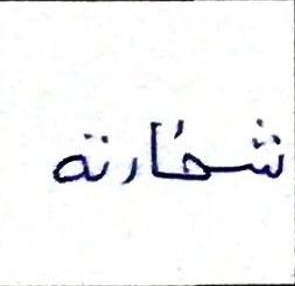 شخارته